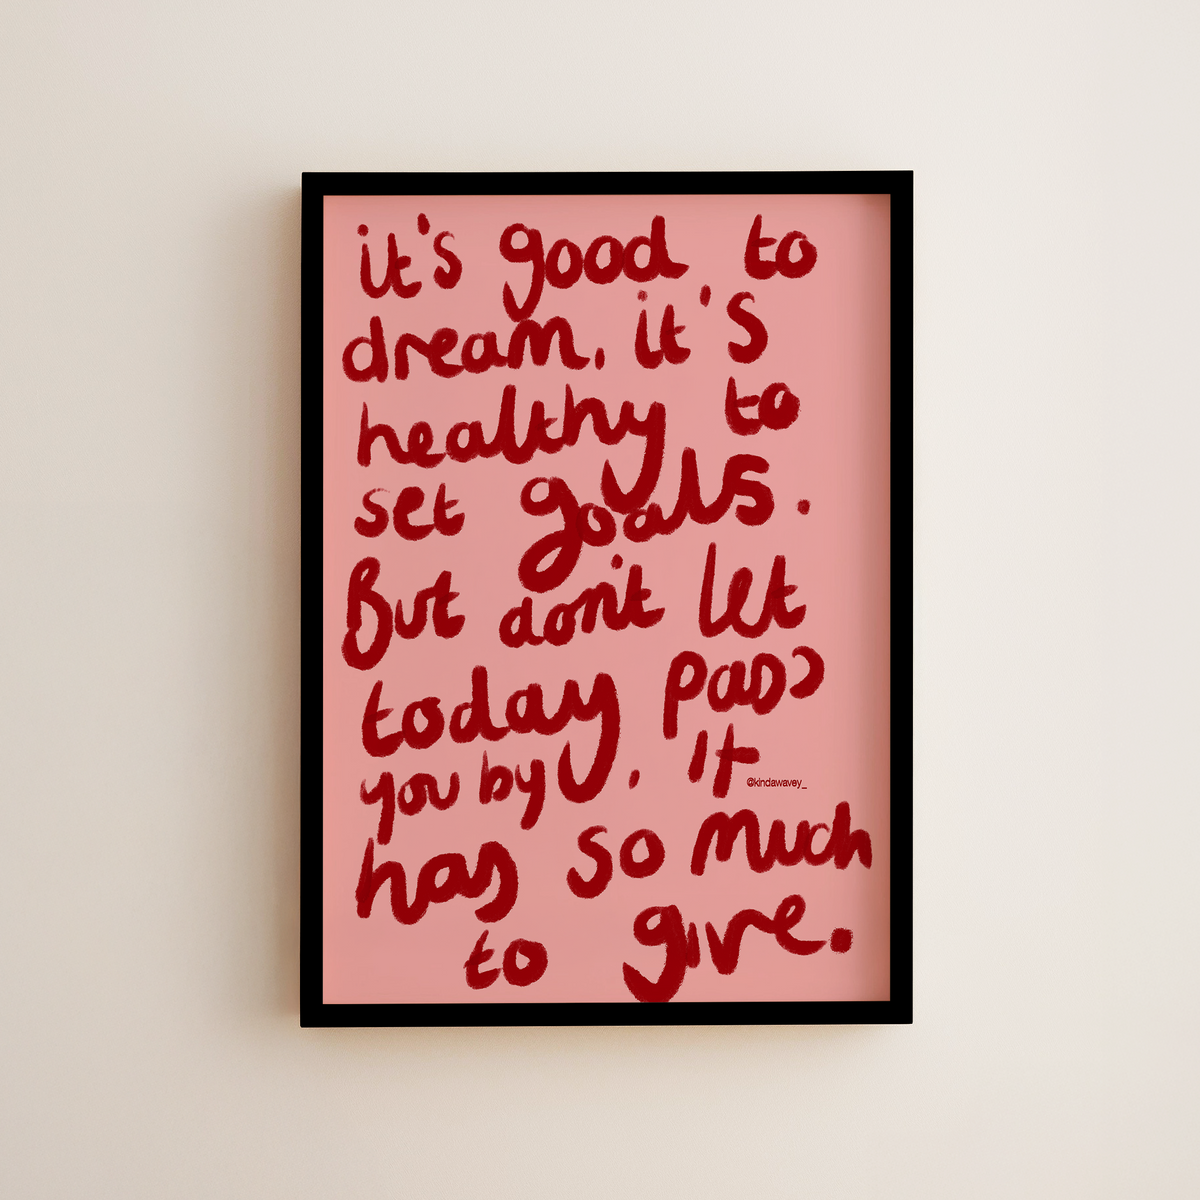 it's good to
dream. it's
healthy to
set goals.
But don't let
today pass
you by. It
@kindawavey_
has so much
to give.